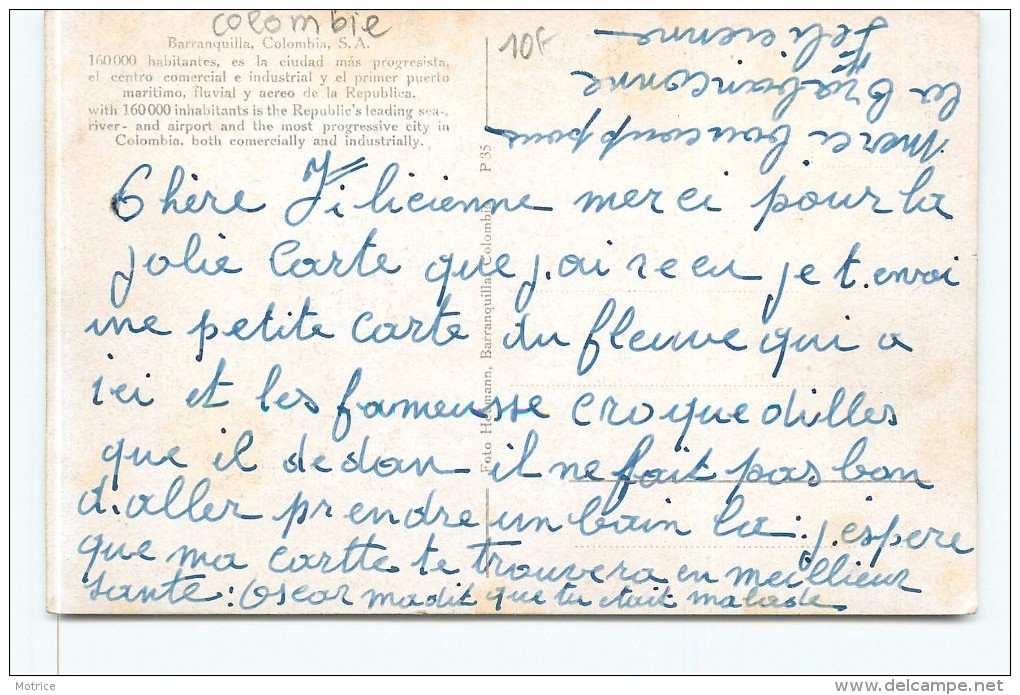 colombie
10F
Barranquilla, Colombia, S. A.
160 000 habitantes, es la ciudad más progresista,
el centro comercial e industrial y el primer puerto
maritimo, fluvial y aereo de la Republica.
with 160 000 inhabitants is the Republic's leading sea-,
river- and airport and the most progressive city in
Colombia, both comercially and industrially.
Chère Filicienne merci pour la
jolie carte que j.ai recu je t.envoi
une petite carte du fleuve qui a
ici et les fameusse croquedilles
que il dedan il ne fait pas bon
d.aller prendre un bain la: j.espere
que ma cartte te trouvera en meillieur
sante: Oscar ma dit que tu etait malade
merci boucoup pour
la Brabanconne
Felicienne
Barranquilla, Colombia P 35
Foto
Motrice
www.delcampe.net